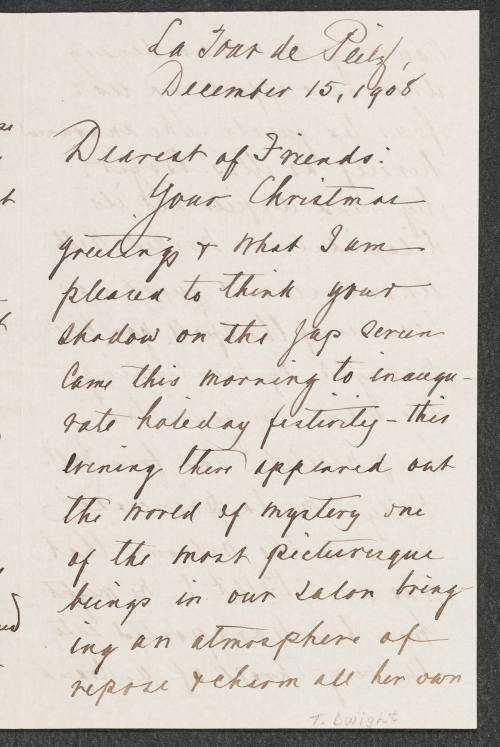 La Tour de Peilz,
December 15, 1908
Dearest of Friends:
Your Christmas
greetings & what I am
pleased to think your
shadow on the Jap screen
came this morning to inaugu-
rate holiday festivity - this
evening there appeared out
the world of mystery one
of the most picturesque
beings in our salon bring-
ing an atmosphere of
repose & charm all her own
T. Dwight